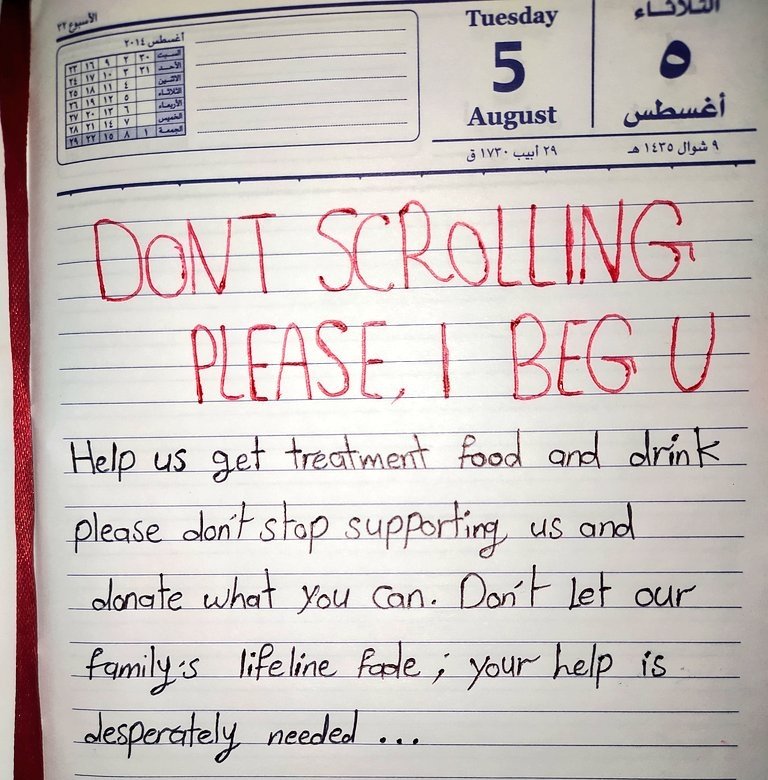 الأسبوع ٣٢
أغسطس ٢٠١٤
السبت ٣٠ ٢ ٩ ١٦ ٢٣
الأحد ٣١ ٣ ١٠ ١٧ ٢٤
الاثنين ٤ ١١ ١٨ ٢٥
الثلاثاء ٥ ١٢ ١٩ ٢٦
الأربعاء ٦ ١٣ ٢٠ ٢٧
الخميس ٧ ١٤ ٢١ ٢٨
الجمعة ١ ٨ ١٥ ٢٢ ٢٩
Tuesday
5
August
الثلاثاء
٥
أغسطس
٩ شوال ١٤٣٥ هـ
٢٩ أبيب ١٧٣٠ ق
DONT SCROLLING
PLEASE, I BEG U
Help us get treatment food and drink
please don't stop supporting us and
donate what you can. Don't let our
family's lifeline fade ; your help is
desperately needed ...